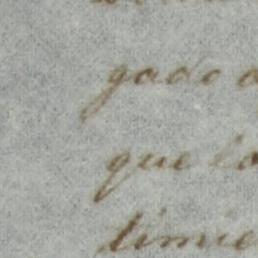 gado
que la
timie